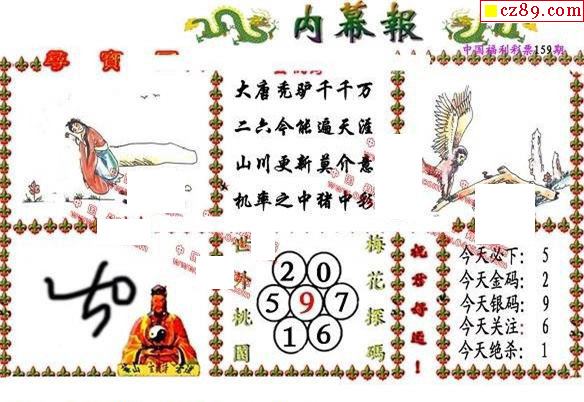 cz89.com
内幕報
中国福利彩票159期
尋寶圖
大唐秃驴千千万
二六今能遍天涯
山川更新莫介意
机率之中猪中彩
世外桃園
2 0
5 9 7
1 6
梅花探碼
祝君好运!
今天必下: 5
今天金码: 2
今天银码: 9
今天关注: 6
今天绝杀: 1